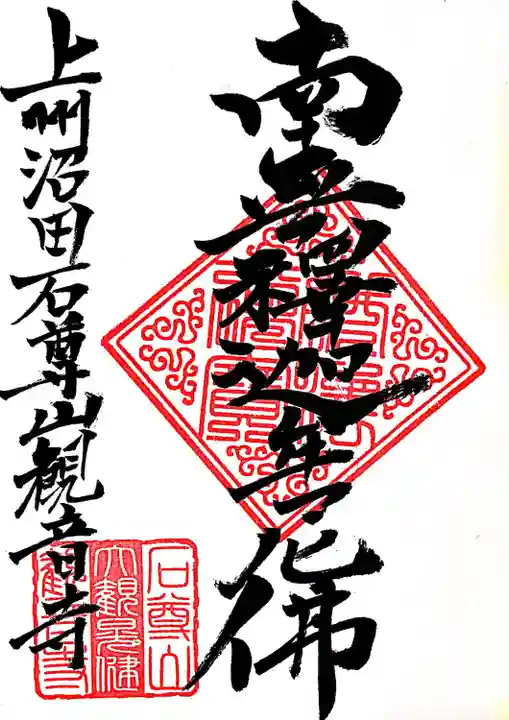 南無釋迦牟尼佛
上州沼田石尊山観音寺
石尊山